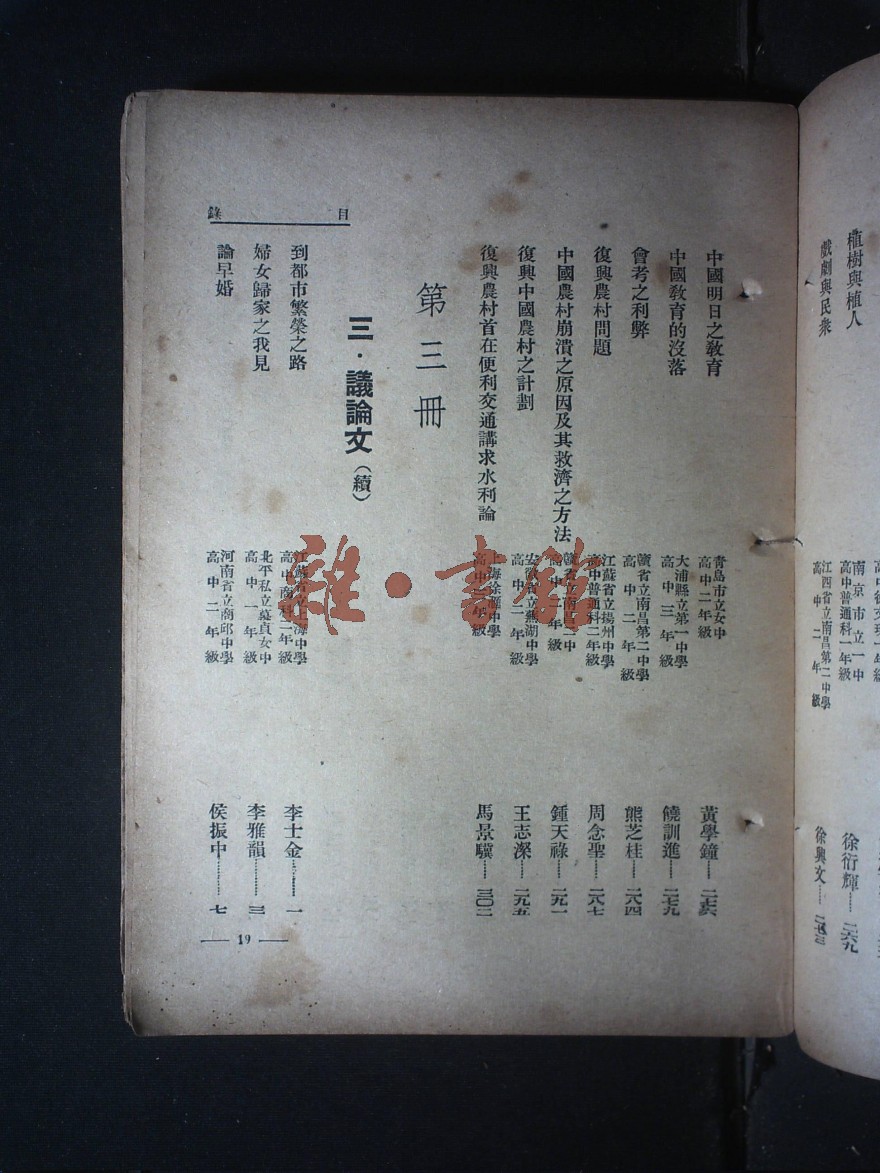 植樹與植人
南京市立一中
高中普通科一年級
徐衍輝……二六九
戲劇與民衆
江西省立南昌第二中學
高中二年級
徐興文……二七三
目錄
中國明日之教育
青島市立女中
高中二年級
黃學鐘……二七六
中國教育的沒落
大浦縣立第一中學
高中三年級
饒訓進……二七九
會考之利弊
贛省立南昌第二中學
高中二年級
熊芝桂……二八四
復興農村問題
江蘇省立揚州中學
高中普通科二年級
周念聖……二八七
中國農村崩潰之原因及其救濟之方法
贛省立南昌二中
高中 年級
鍾天祿……二九一
復興中國農村之計劃
安徽省立蕪湖中學
高中二年級
王志潔……二九五
復興農村首在便利交通講求水利論
上海徐匯中學
高中 年級
馬景驥……三〇二
第三冊
三·議論文(續)
到都市繁榮之路
江蘇省立上海中學
高中商科二年級
李士金……一
婦女歸家之我見
北平私立慕貞女中
高中一年級
李雅韻……三
論早婚
河南省立商邱中學
高中二年級
侯振中……七
19
雜·書館